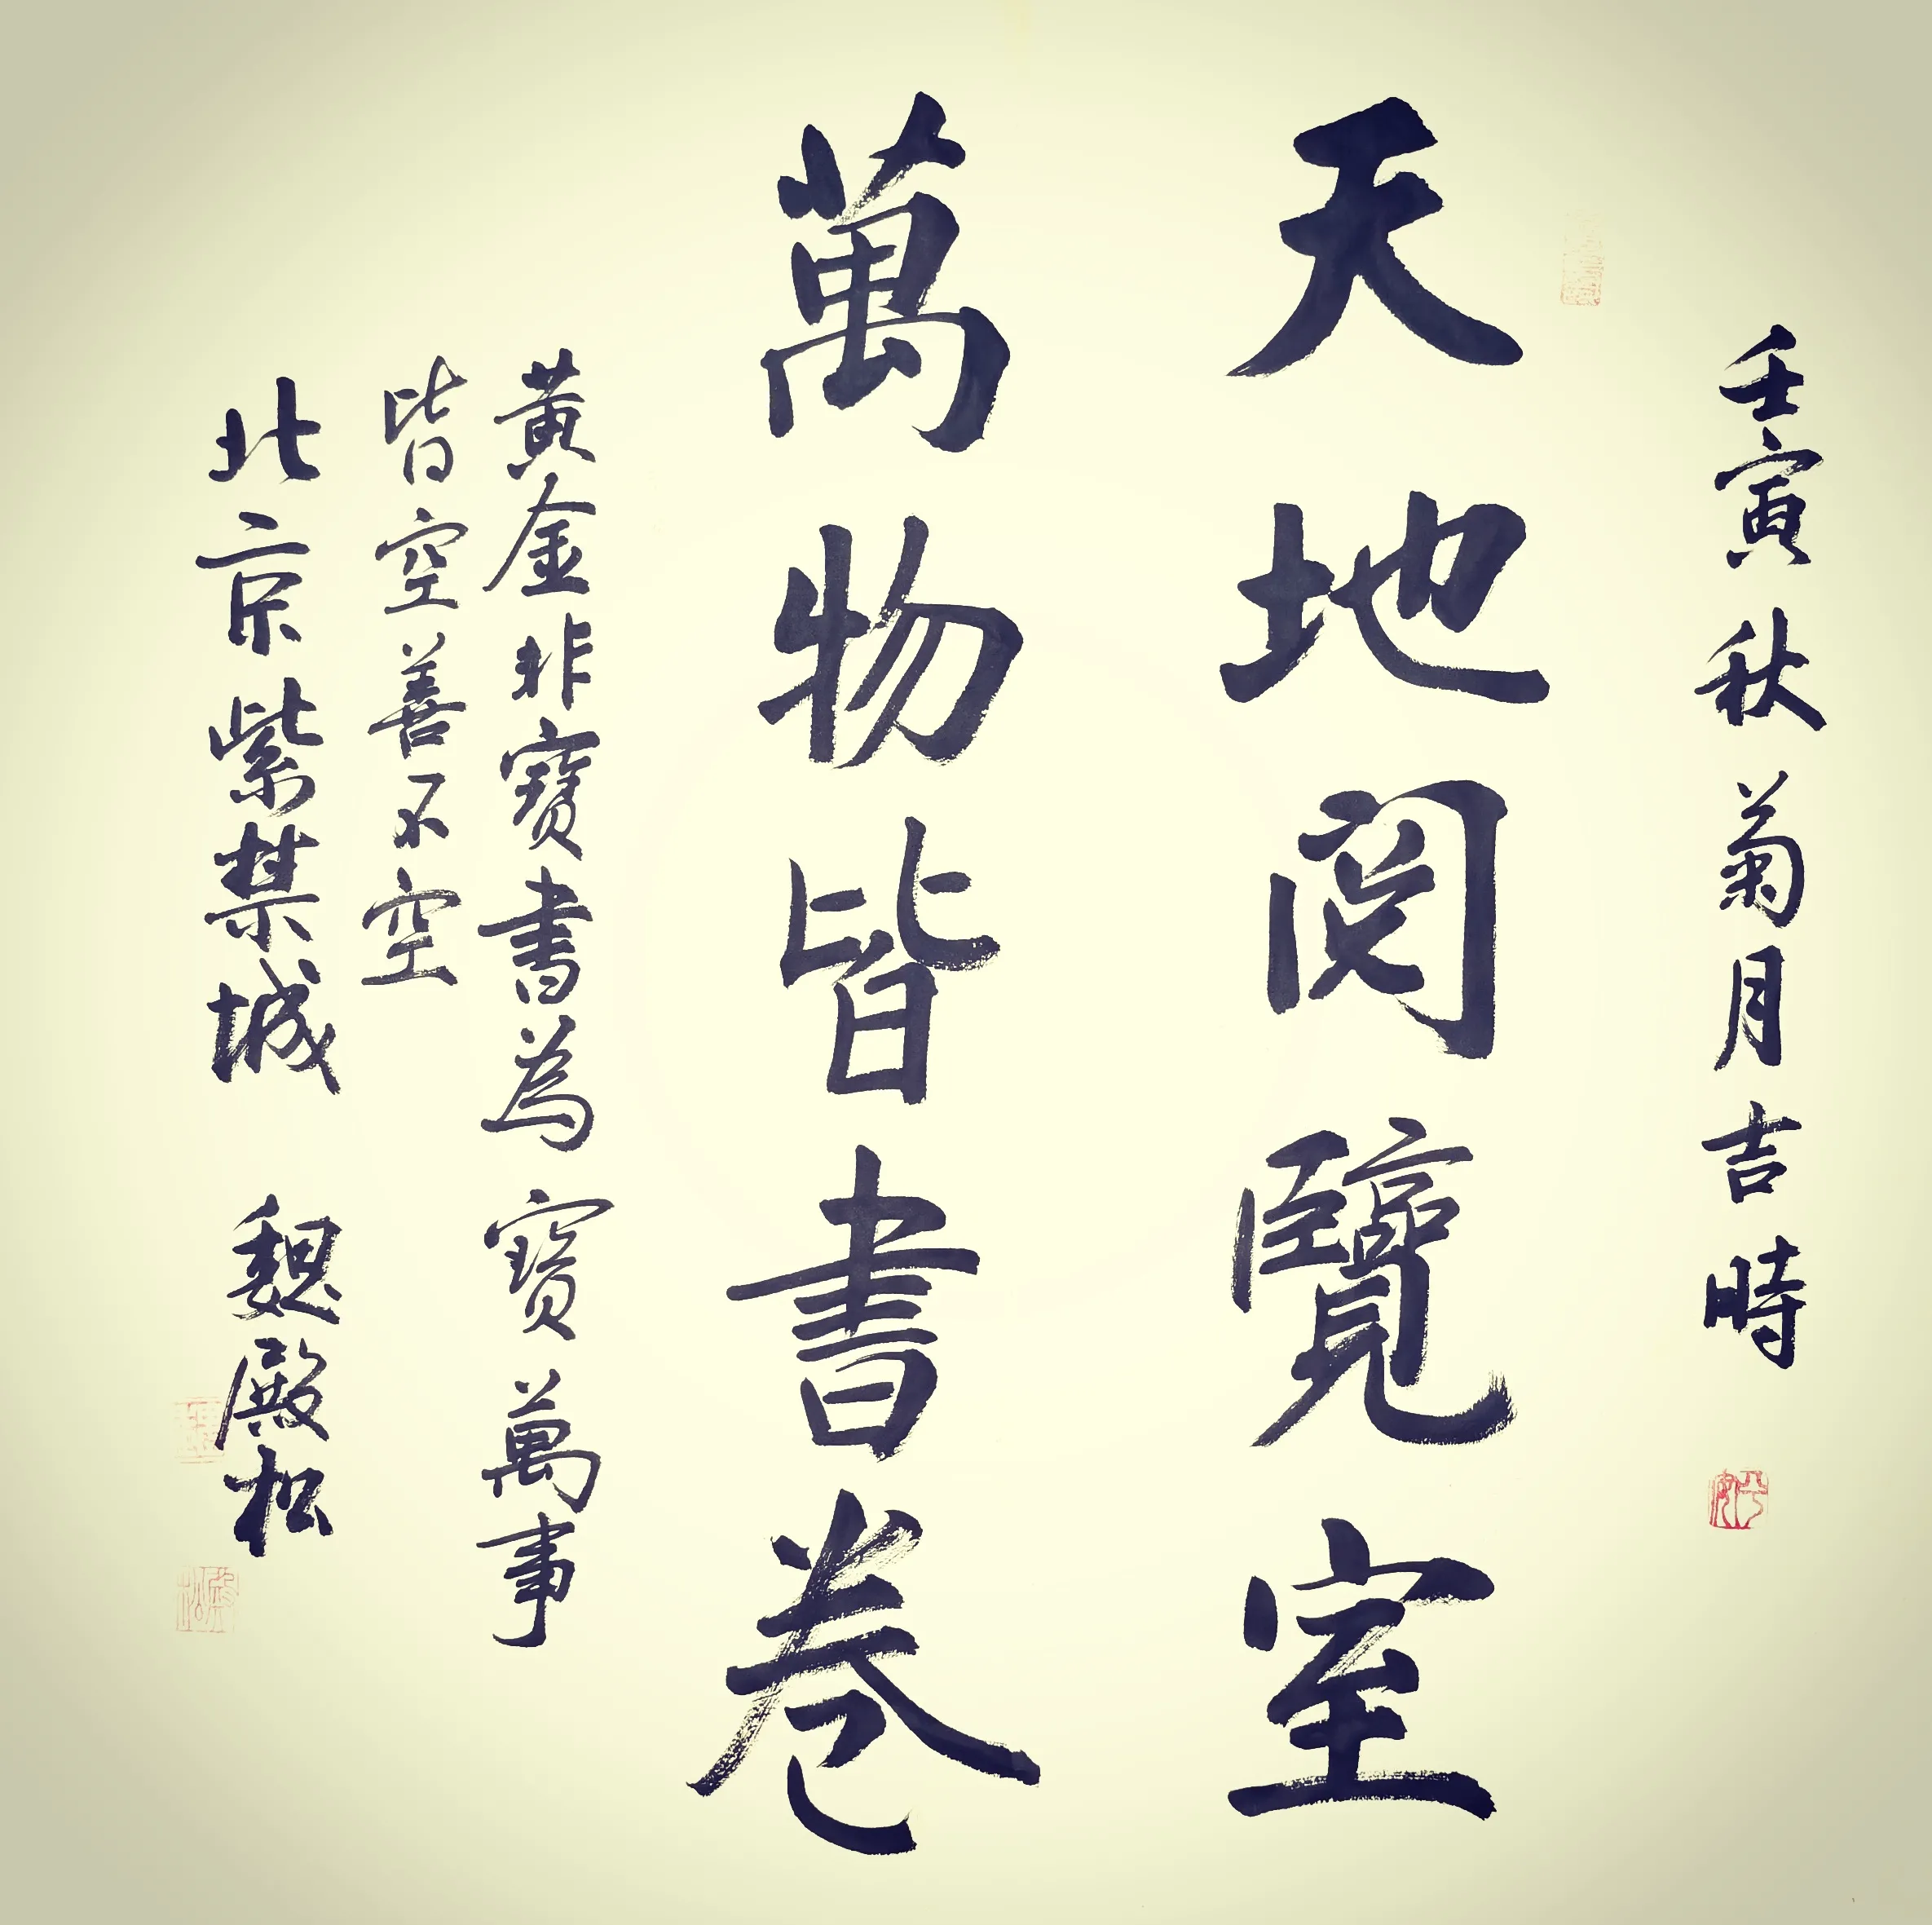 壬寅秋菊月吉時
天地閲覽室
萬物皆書卷
黃金非寶書為寶萬事
皆空善不空
北京紫禁城 魏殿松